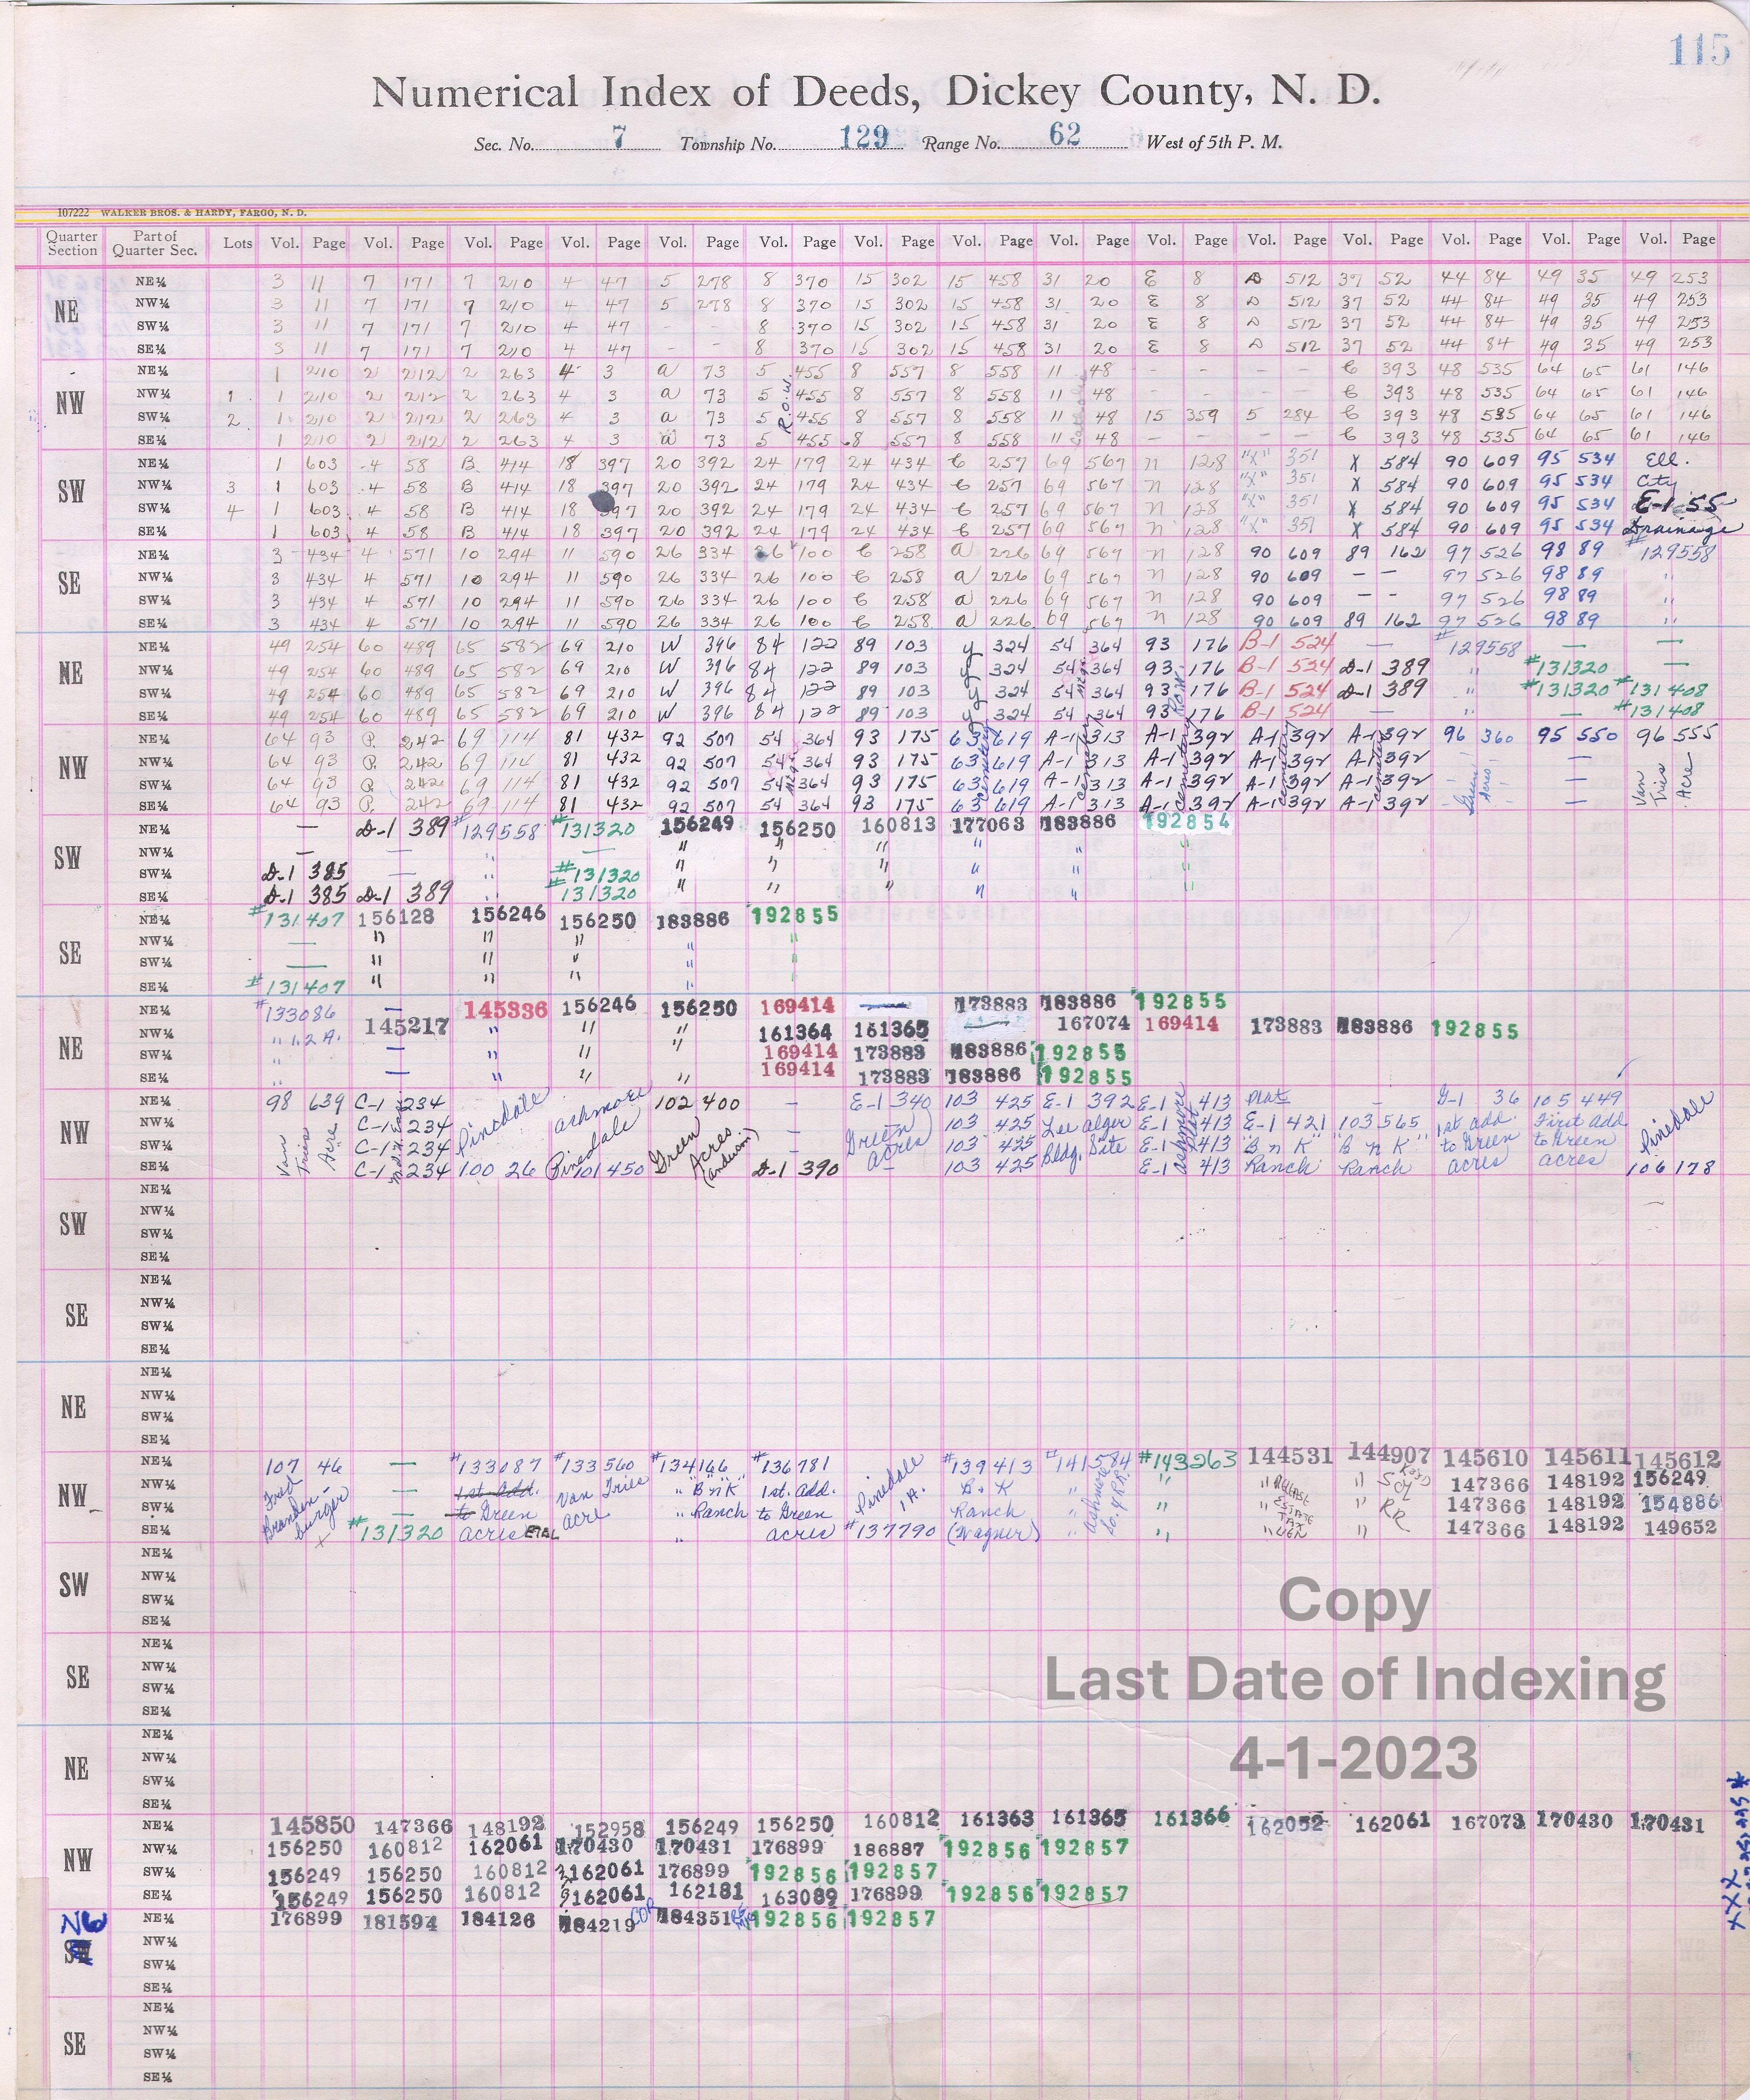 115
Numerical Index of Deeds, Dickey County, N. D.
Sec. No. 7 Township No. 129 Range No. 62 West of 5th P. M.
107222 WALKER BROS. & HARDY, FARGO, N. D.
Quarter Section Part of Quarter Sec. Lots Vol. Page Vol. Page Vol. Page Vol. Page Vol. Page Vol. Page Vol. Page Vol. Page Vol. Page Vol. Page Vol. Page Vol. Page Vol. Page Vol. Page Vol. Page
NE
NE¼ 3 11 7 171 7 210 4 47 5 278 8 370 15 302 15 458 31 20 E 8 D 512 37 52 44 84 49 35 49 253
NW¼ 3 11 7 171 7 210 4 47 5 278 8 370 15 302 15 458 31 20 E 8 D 512 37 52 44 84 49 35 49 253
SW¼ 3 11 7 171 7 210 4 47 - - 8 370 15 302 15 458 31 20 E 8 D 512 37 52 44 84 49 35 49 253
SE¼ 3 11 7 171 7 210 4 47 - - 8 370 15 302 15 458 31 20 E 8 D 512 37 52 44 84 49 35 49 253
NW
NE¼ 1 210 2 212 2 263 4 3 a 73 5 455 8 557 8 558 11 48 - - - - C 393 48 535 64 65 61 146
NW¼ 1 1 210 2 212 2 263 4 3 a 73 5 R.O.W. 455 8 557 8 558 11 48 - - - - C 393 48 535 64 65 61 146
SW¼ 2 1 210 2 212 2 263 4 3 a 73 5 455 8 557 8 558 11 48 15 359 5 284 C 393 48 535 64 65 61 146
SE¼ 1 210 2 212 2 263 4 3 a 73 5 455 8 557 8 558 11 48 - - - - C 393 48 535 64 65 61 146
SW
NE¼ 1 603 4 58 B 414 18 397 20 392 24 179 24 434 C 257 69 567 n 128 "X" 351 X 584 90 609 95 534 Ell.
NW¼ 3 1 603 4 58 B 414 18 397 20 392 24 179 24 434 C 257 69 567 n 128 "X" 351 X 584 90 609 95 534 City
SW¼ 4 1 603 4 58 B 414 18 397 20 392 24 179 24 434 C 257 69 567 n 128 "X" 351 X 584 90 609 95 534 E-1 55
SE¼ 1 603 4 58 B 414 18 397 20 392 24 179 24 434 C 257 69 567 n 128 "X" 351 X 584 90 609 95 534 Drainage
SE
NE¼ 3 434 4 571 10 294 11 590 26 334 26 100 C 258 a 226 69 567 n 128 90 609 89 162 97 526 98 89 #129558
NW¼ 3 434 4 571 10 294 11 590 26 334 26 100 C 258 a 226 69 567 n 128 90 609 — — 97 526 98 89 "
SW¼ 3 434 4 571 10 294 11 590 26 334 26 100 C 258 a 226 69 567 n 128 90 609 - - 97 526 98 89 "
SE¼ 3 434 4 571 10 294 11 590 26 334 26 100 C 258 a 226 69 567 n 128 90 609 89 162 97 526 98 89 "
NE
NE¼ 49 254 60 489 65 582 69 210 W 396 84 122 89 103 y 324 54 364 93 176 B-1 524 — #129558 — —
NW¼ 49 254 60 489 65 582 69 210 W 396 84 122 89 103 y 324 54 364 93 176 B-1 524 D-1 389 " #131320 —
SW¼ 49 254 60 489 65 582 69 210 W 396 84 122 89 103 y 324 54 364 93 Row 176 B-1 524 D-1 389 " #131320 #131408
SE¼ 49 254 60 489 65 582 69 210 W 396 84 122 89 103 y 324 54 364 93 176 B-1 524 — " — #131408
NW
NE¼ 64 93 P. 242 69 114 81 432 92 507 54 364 93 175 63 619 A-1 313 A-1 392 A-1 392 A-1 392 96 360 95 550 96 555
NW¼ 64 93 P. 242 69 114 81 432 92 507 54 364 93 175 63 619 A-1 313 A-1 392 A-1 392 A-1 392 Green Acres — Van Tries Acre
SW¼ 64 93 P. 242 69 114 81 432 92 507 54 364 93 175 63 cemetery 619 A-1 cemetery 313 A-1 cemetery 392 A-1 cemetery 392 A-1 cemetery 392 —
SE¼ 64 93 P. 242 69 114 81 432 92 507 54 364 93 175 63 619 A-1 313 A-1 392 A-1 392 A-1 392 —
SW
NE¼ — D-1 389 #129558 #131320 156249 156250 160813 177063 183886 192854
NW¼ — — " — " " " " " "
SW¼ D-1 385 — " #131320 " " " " " "
SE¼ D-1 385 D-1 389 " #131320 " " " " " "
SE
NE¼ #131407 156128 156246 156250 183886 192855
NW¼ — " " " " "
SW¼ — " " " " "
SE¼ #131407 " " " " "
NE
NE¼ #133086 — 145336 156246 156250 169414 — 173883 183886 192855
NW¼ " 1.2 A. 145217 " " " 161364 161365 — 167074 169414 173883 183886 192855
SW¼ " — " " 169414 173883 183886 192855
SE¼ " — " " " 169414 173883 183886 192855
NW
NE¼ 98 639 C-1 234 Pinedale Ashmore 102 400 — E-1 340 103 425 E-1 392 E-1 413 Plat — G-1 36 105 449 Pinedale
NW¼ Van Tries Acre C-1 234 Green Acres — Green 103 425 Lee Alger E-1 Ashmore Plat 413 E-1 421 103 565 1st add. First add
SW¼ C-1 234 Pinedale — acres 103 425 Bldg. Site E-1 413 "B n K" "B n K" to Green to Green
SE¼ C-1 234 100 26 101 450 D-1 390 — 103 425 E-1 413 Ranch Ranch acres acres 106 178
SW
NE¼
NW¼
SW¼
SE¼
SE
NE¼
NW¼
SW¼
SE¼
NE
NE¼
NW¼
SW¼
SE¼
NW
NE¼ 107 46 — #133087 #133560 #134166 #136781 Pinedale 1A. #139413 #141584 #143263 144531 144907 145610 145611 145612
NW¼ Fred Brandenburger — 1st. Add. Van Tries "B n K" 1st. Add. B. K " " " RELEASE " 147366 148192 156249
SW¼ — to Green acre " Ranch to Green Ranch Ashmore " " ESTATE TAX " RR 147366 148192 154886
SE¼ #131320 acres ETAL " acres #137790 (Wagner) " " " LIEN " 147366 148192 149652
SW
NE¼
NW¼
SW¼
SE¼
SE
NE¼
NW¼
SW¼
SE¼
Copy
Last Date of Indexing
4-1-2023
NE
NE¼
NW¼
SW¼
SE¼
NW
NE¼ 145850 147366 148192 152958 156249 156250 160812 161363 161365 161366 162052 162061 167073 170430 170431
NW¼ 156250 160812 162061 170430 170431 176899 186887 192856 192857
SW¼ 156249 156250 160812 162061 176899 192856 192857
SE¼ 156249 156250 160812 162061 162181 163089 176899 192856 192857
NW
NE¼ 176899 181594 184126 184219 COR 184351 192856 192857
NW¼
SW¼
SE¼
SE
NE¼
NW¼
SW¼
SE¼
XXX